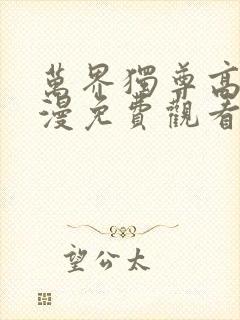 萬界獨尊高
漫免費觀看
望公太